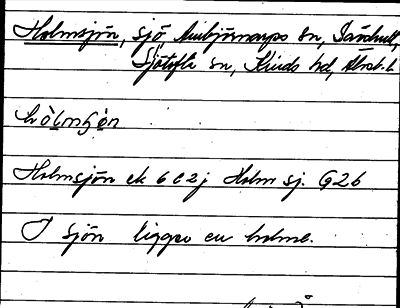 Holmsjön, sjö Ambjörnarps sn, Sandhult,
Sjötofta sn, Kinds hd, Älvsb. l.
hòlmʃø̀n
Holmsjön ek 6 C 2 j Holm sj. G26
I sjön ligger en holme.